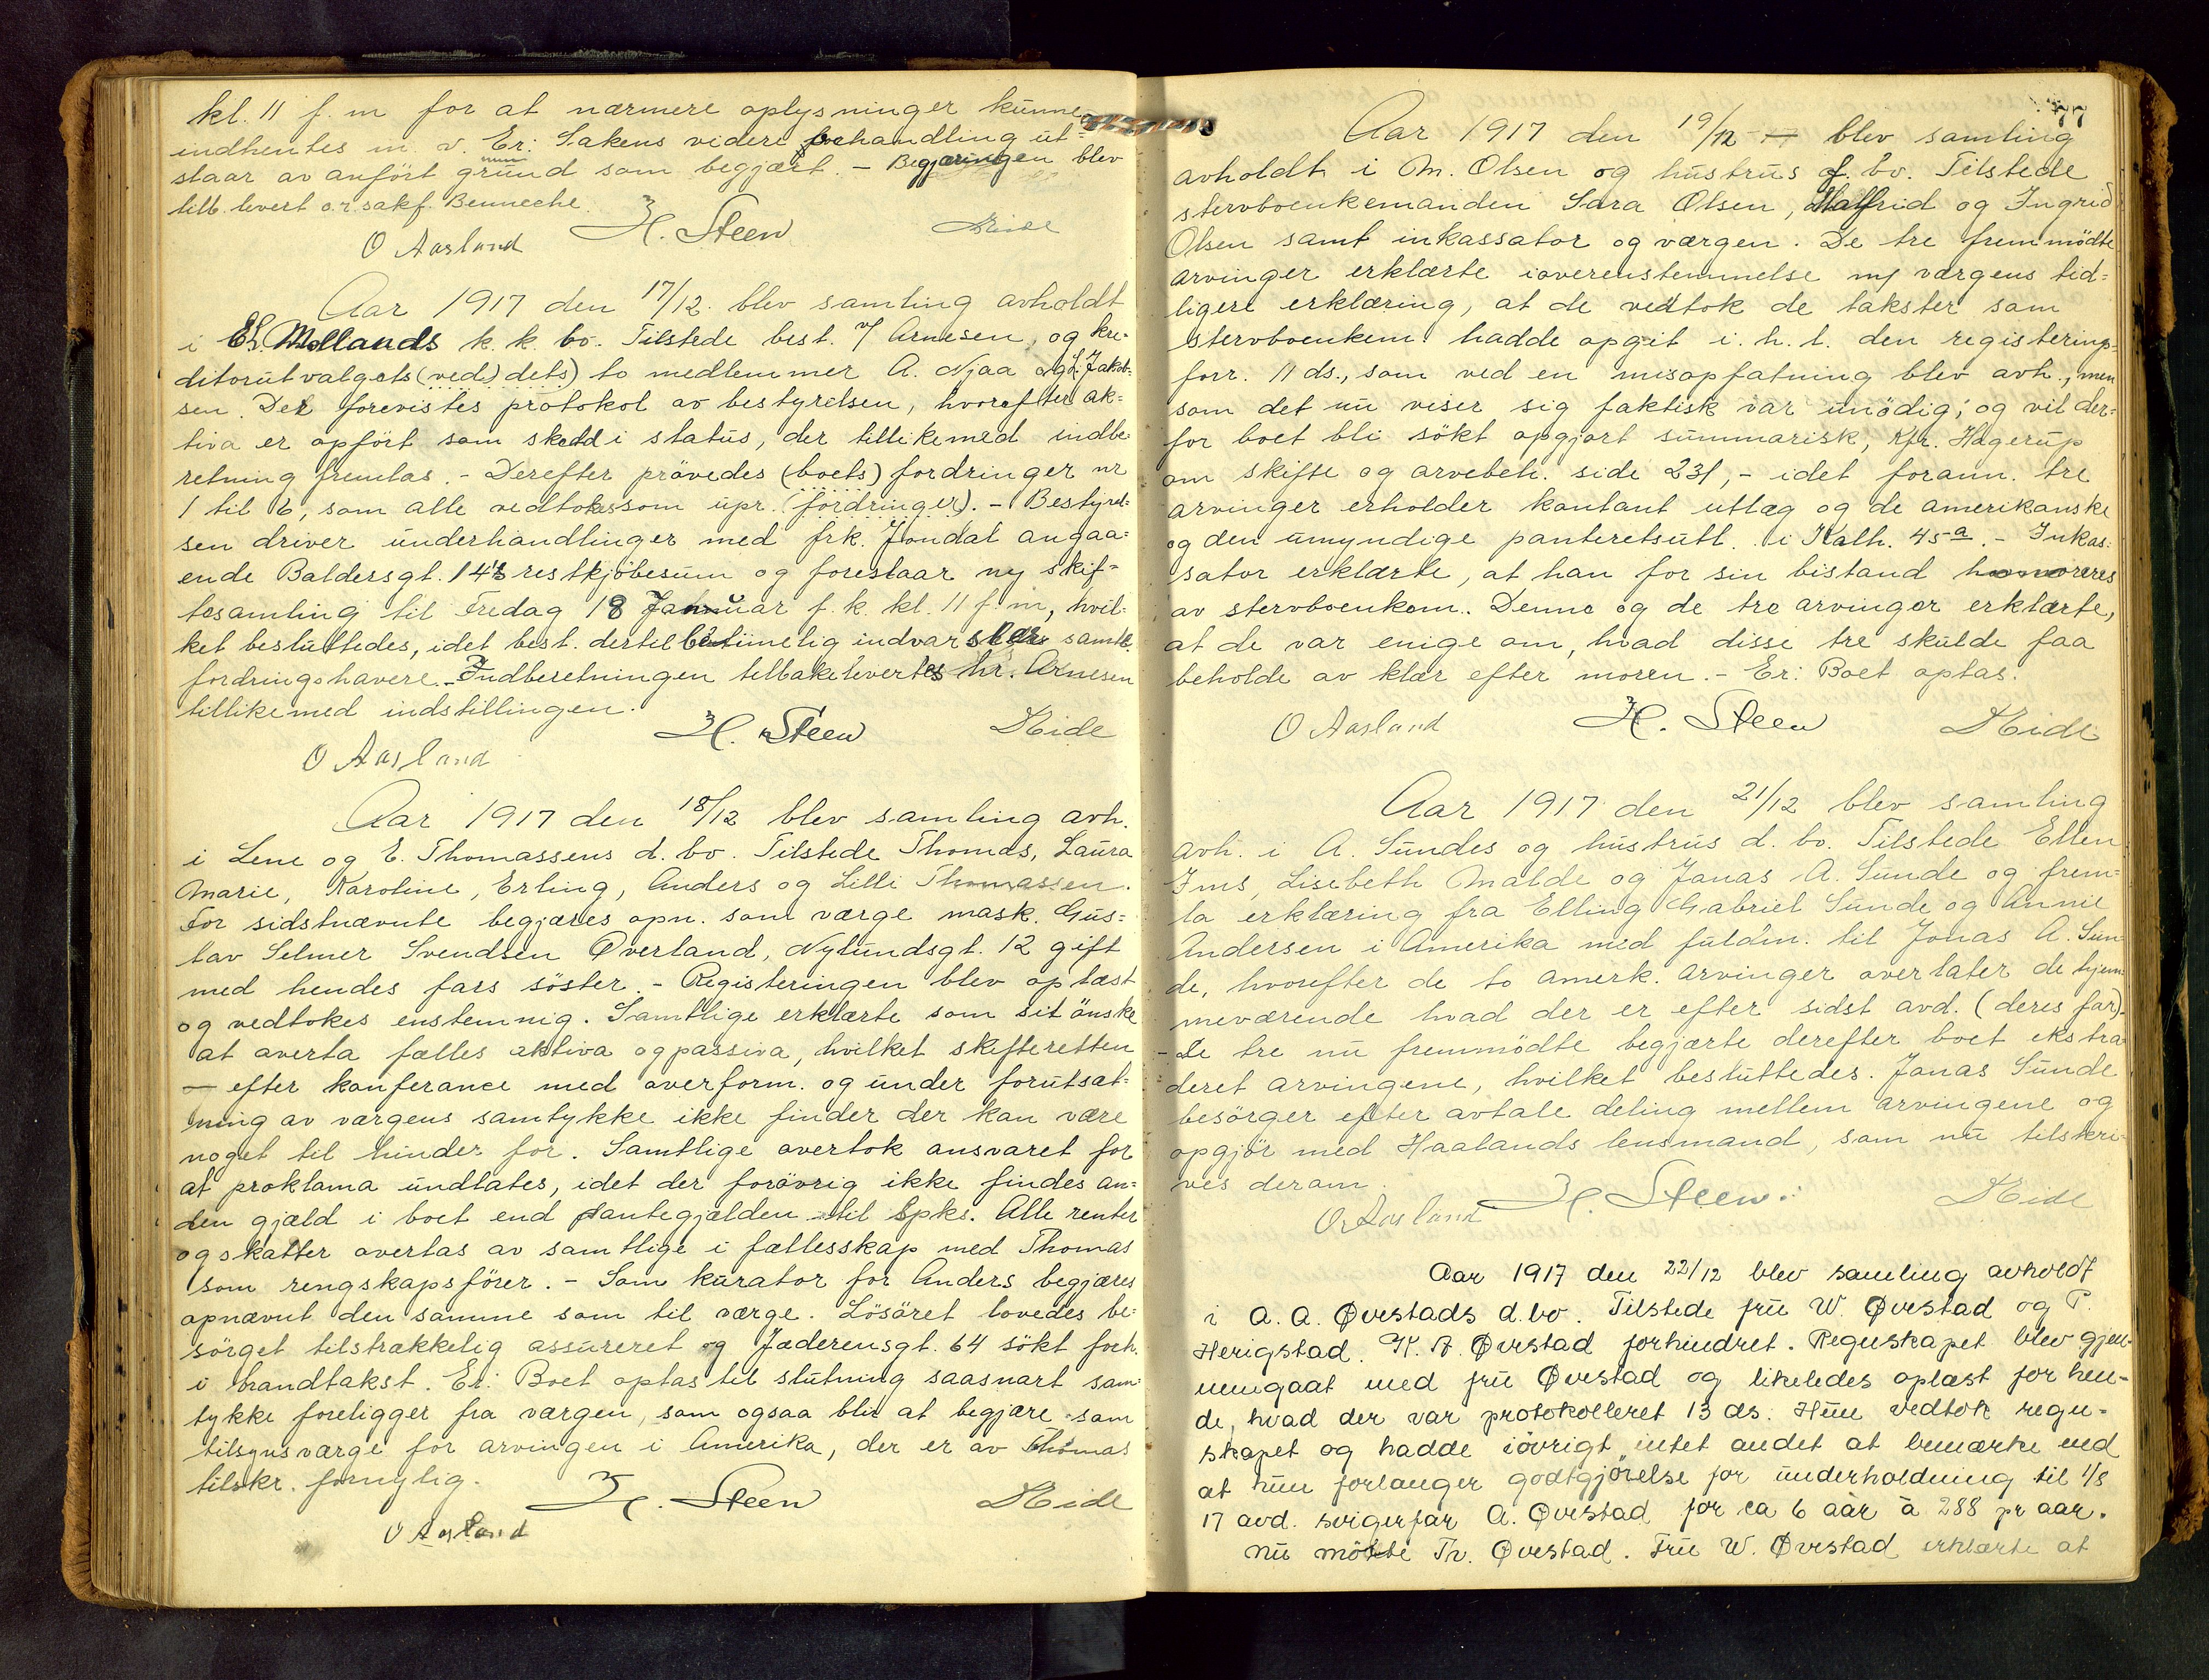 kl. 11 f. m for at nærmere oplysninger kunne
indhentes m. v. Er: Sakens videre behandling ut-
staar av anført grund som begjært. - Begjæringen blev
tilb. levert o.r.sakf. Benneche.
O Aarland H. Steen Meide
Aar 1917 den 17/12. blev samling avholdt
i El. Mollands k. k. bo. Tilstede best. v/ Arnesen, og kre-
ditorutvalgets (ved) dets) to medlemmer A. Njaa og L. Jakob-
sen. Der forevistes protokol av bestyrelsen, hvorefter ak-
tiva er opført som skedd i status, der tillikemed indbe-
retning fremlas. - Derefter prøvedes (boets) fordringer nr
1 til 6, som alle vedtokes som upr. (fordringer). - Bestyrel-
sen driver underhandlinger med frk. Jondal angaa-
ende Baldersgt. 14s restkjøbesum og foreslaar ny skif-
tesamling til Fredag 18 Januar f. k. kl. 11 f. m, hvil-
ket besluttedes, idet best. dertil betimelig indvarsler samtl.
fordringshavere. - Indberetningen tilbakelevertes hr. Arnesen
tillikemed indstillingen.
O Aarland H. Steen Meide
Aar 1917 den 18/12 blev samling avh.
i Lene og E. Thomassens d. bo. Tilstede Thomas, Laura
Marie, Karoline, Erling, Anders og Lilli Thomassen.
For sidstnævnte begjæres opn. som værge mask. Gus-
tav Selmer Svendsen Øverland, Nylundsgt. 12 gift
med hendes fars søster. - Registeringen blev oplæst
og vedtokes enstemmig. Samtlige erklærte som sit ønske
at overta fælles aktiva og passiva, hvilket skifteretten
- efter konferance med overform. og under forutsæt-
ning av værgens samtykke ikke finder der kan være
noget til hinder for. Samtlige overtok ansvaret for
at proklama undlates, idet der forøvrig ikke findes an-
den gjæld i boet end pantegjælden til Spks. Alle renter
og skatter overtas av samtlige i fællesskap med Thomas
som rengskapsfører. - Som kurator for Anders begjæres
opnævnt den samme som til værge. Løsøret lovedes be-
sørget tilstrækkelig assureret og Jæderensgt. 64 søkt forh.
i brandtakst. Er: Boet optas til slutning saasnart sam-
tykke foreligger fra værgen, som ogsaa blir at begjære som
tilsynsværge for arvingen i Amerika, der er av Thomas
tilskr. fornylig.
O Aarland H. Steen Meide
77
Aar 1917 den 19/12 - blev samling
avholdt i M. Olsen og hustrus f. bo. Tilstede
stervboenkemanden Sara Olsen, Halfrid og Ingrid
Olsen samt inkassator og værgen. De tre fremmødte
arvinger erklærte i overenstemmelse m/ værgens tid-
ligere erklæring, at de vedtok de takster som
stervboenkem. hadde opgit i. h. t. den registerings-
forr. 11 ds., som ved en misopfatning blev avh., men
som det nu viser sig faktisk var unødig; og vil der-
for boet bli søkt opgjort summarisk, kfr. Hagerup
om skifte og arvebeh. side 231, - idet forann. tre
arvinger erholder kontant utlæg og de amerikanske
og den umyndige panteretsutl. i Kalh. 45 a. - Inkas-
sator erklærte, at han for sin bistand honoreres
av stervboenkem. Denne og de tre arvinger erklærte,
at de var enige om, hvad disse tre skulde faa
beholde av klær efter moren. - Er: Boet optas.
O Aarland H. Steen Meide
Aar 1917 den 21/12 blev samling
avh. i A. Sundes og hustrus d. bo. Tilstede Ellen
Ims, Lisebeth Malde og Jonas A. Sunde og frem-
la erklæring fra Elling Gabriel Sunde og Annie
Andersen i Amerika med fuldm. til Jonas A. Sun-
de, hvorefter de to amerk. arvinger overlater de hjem-
meværende hvad der er efter sidst avd. (deres far).
- De tre nu fremmødte begjærte derefter boet ekstra-
deret arvingene, hvilket besluttedes. Jonas Sunde
besørger efter avtale deling mellem arvingene og
opgjør med Haalands lensmand, som nu tilskri-
ves derom.
O. Aarland H. Steen. Meide
Aar 1917 den 22/12 blev samling avholdt
i A. A. Øvestads d. bo. Tilstede fru W. Øvestad og P.
Herigstad. K. A. Øvestad forhindret. Regnskapet blev gjen-
nemgaat med fru Øvestad og likeledes oplæst for hen-
de, hvad der var protokolleret 13 ds. Hun vedtok regn-
skapet og hadde iøvrigt intet andet at bemærke end
at hun forlanger godtgjørelse for underholdning til 1/8
17 avd. svigerfar A. Øvestad for ca 6 aar à 288 pr aar.
Nu møtte Tv. Øvestad. Fru W. Øvestad erklærte at